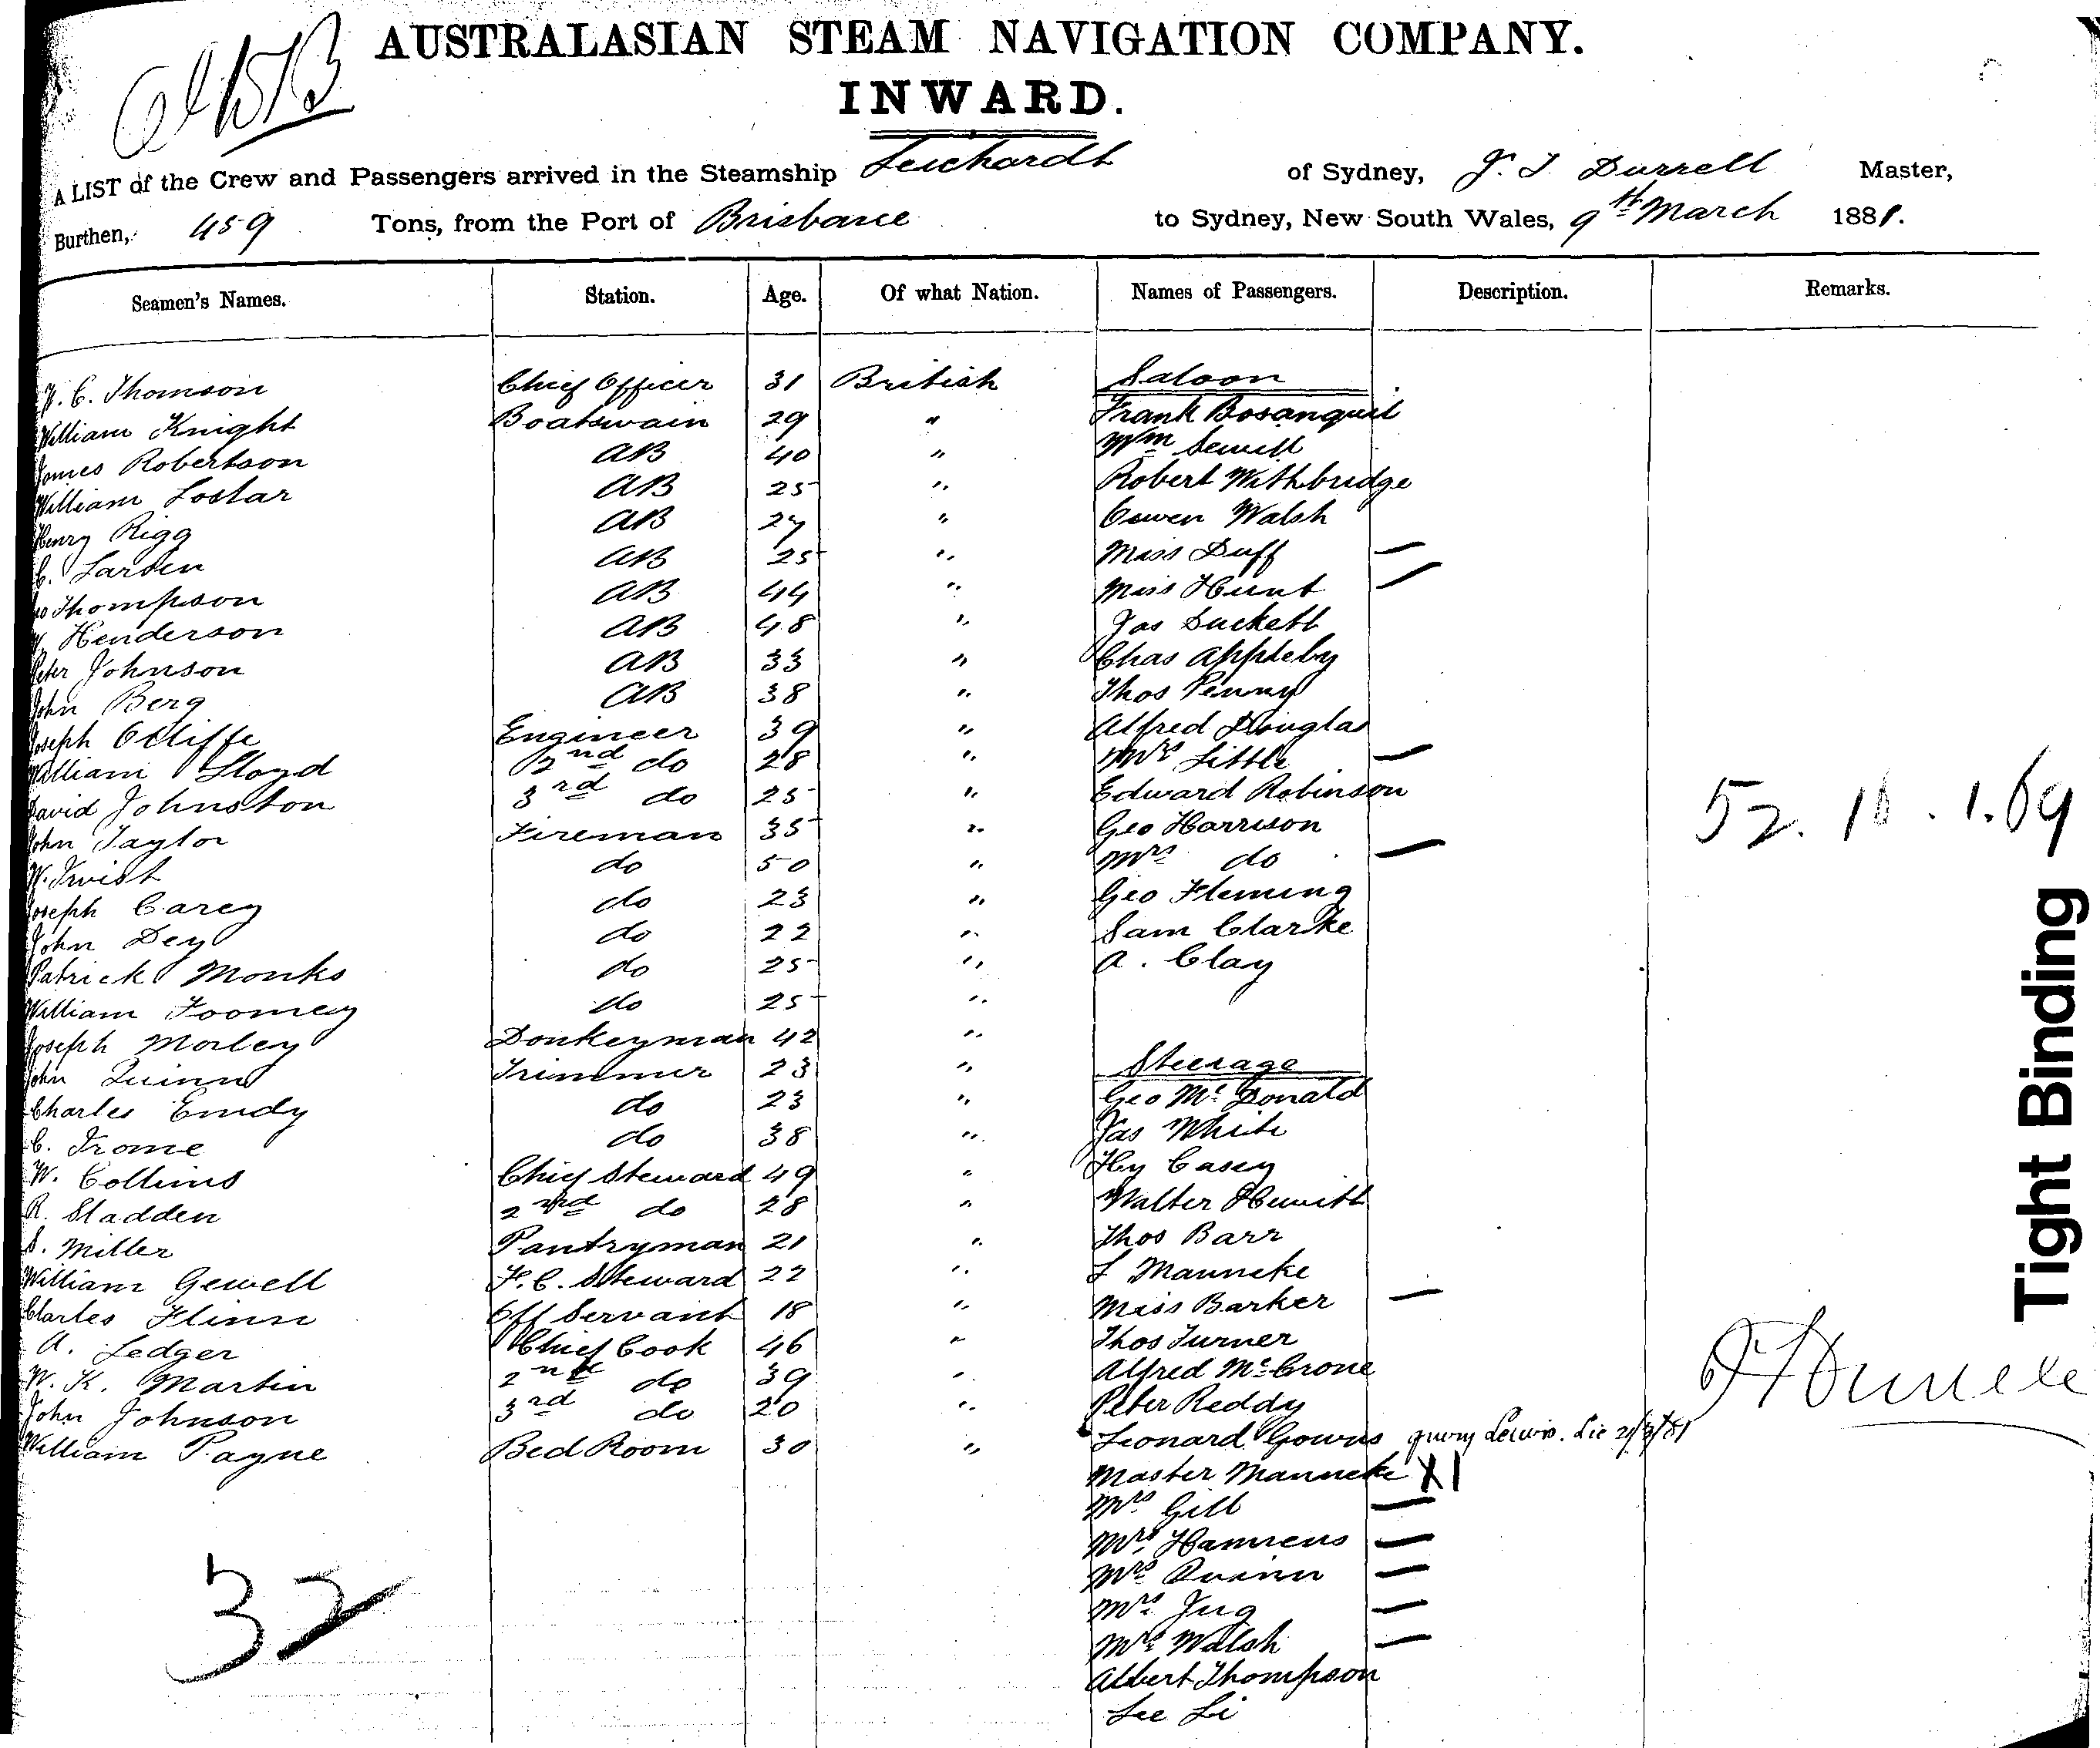 AUSTRALASIAN STEAM NAVIGATION COMPANY.
INWARD.
A LIST of the Crew and Passengers arrived in the Steamship Leichardt of Sydney, J. T. Durrell Master,
Burthen, 459 Tons, from the Port of Brisbane to Sydney, New South Wales, 9th March 1881.
Seamen's Names. Station. Age. Of what Nation. Names of Passengers. Description. Remarks.
C. Thomson Chief Officer 31 British Saloon
William Knight Boatswain 29 " Frank Bosanquet
James Robertson AB 40 " Wm Sewell
William Lostar AB 25 " Robert Withbridge
Henry Rigg AB 27 " Owen Walsh
C. Larsen AB 25 " Miss Duff —
Thompson AB 44 " Miss Hunt —
Henderson AB 48 " Jas Suckett
Peter Johnson AB 33 " Chas Appleby
John Berg AB 38 " Thos Penny
Joseph Ocliffe Engineer 39 " Alfred Douglas
William Lloyd 2nd do 28 " Mrs Little —
David Johnston 3rd do 25 " Edward Robinson
John Taylor Fireman 35 " Geo Harrison
W. Twist do 50 " Mrs do —
Joseph Carey do 23 " Geo Fleming
John Dey do 22 " Sam Clarke
Patrick Monks do 25 " A. Clay
William Toomey do 25 "
Joseph Morley Donkeyman 42 "
John Quinn Trimmer 23 " Steerage
Charles Emdy do 23 " Geo McDonald
C. Trome do 38 " Jas White
W. Collins Chief Steward 49 " Hy Casey
R. Sladden 2nd do 28 " Walter Hewitt
S. Miller Pantryman 21 " Thos Barr
William Gewell F.C. Steward 22 " L Manneke
Charles Flinn Off Servant 18 " Miss Barker —
A. Ledger Chief Cook 46 " Thos Turner
W. K. Martin 2nd do 39 " Alfred McCrone
John Johnson 3rd do 20 " Peter Reddy
William Payne Bed Room 30 " Leonard Gowns query Lewis.
Master Manneke X1
Mrs Gill —
Mrs Hamrens —
Mrs Quinn —
Mrs Jug —
Mrs Walsh —
Albert Thompson
Lee Li
32
52. 10. 1. 69
Tight Binding